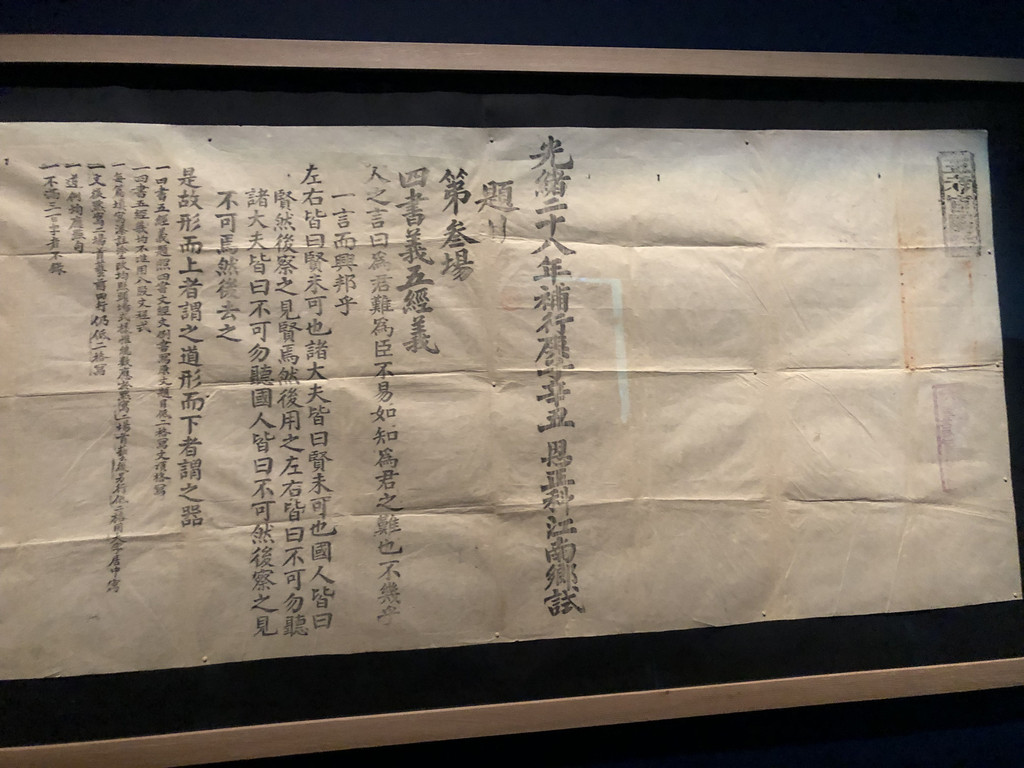 光緒二十八年補行庚子辛丑恩正科江南鄉試
題
第叁場
四書義五經義
人之言曰爲君難爲臣不易如知爲君之難也不幾乎
一言而興邦乎
左右皆曰賢未可也諸大夫皆曰賢未可也國人皆曰
賢然後察之見賢焉然後用之左右皆曰不可勿聽
諸大夫皆曰不可勿聽國人皆曰不可然後察之見
不可焉然後去之
是故形而上者謂之道形而下者謂之器
一四書五經義題照四書文經文例書寫原文題目低二格寫文頂格寫
一四書五經義均不准用八股文程式
一不滿三百字者不錄